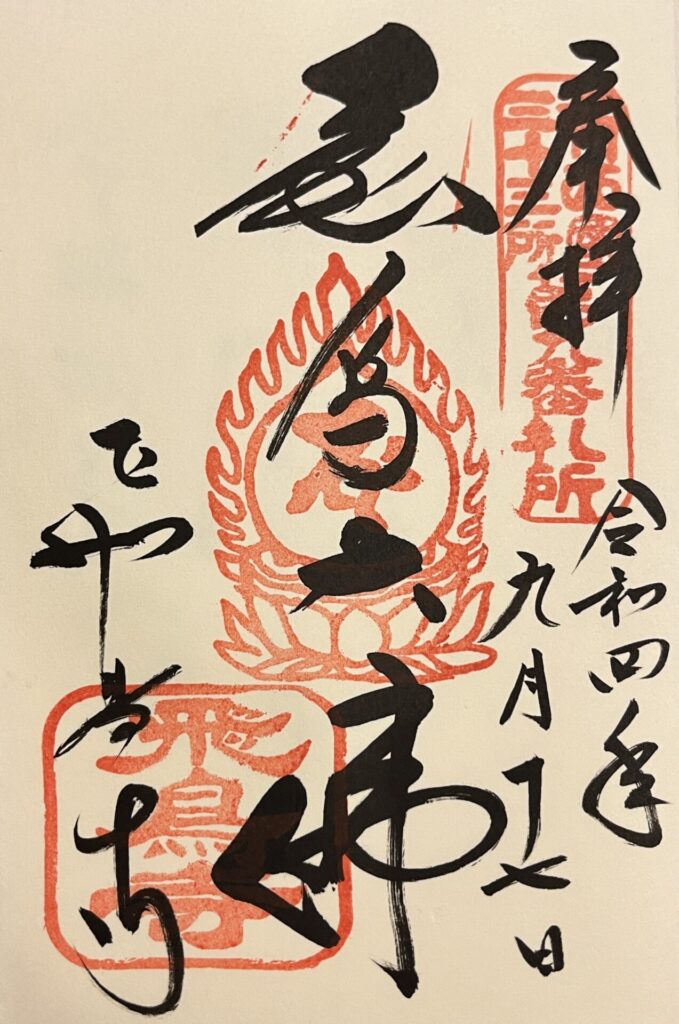 奉拝
令和四年
九月十七日
飛鳥大佛
飛鳥寺
三十三所第九番札所
飛鳥寺